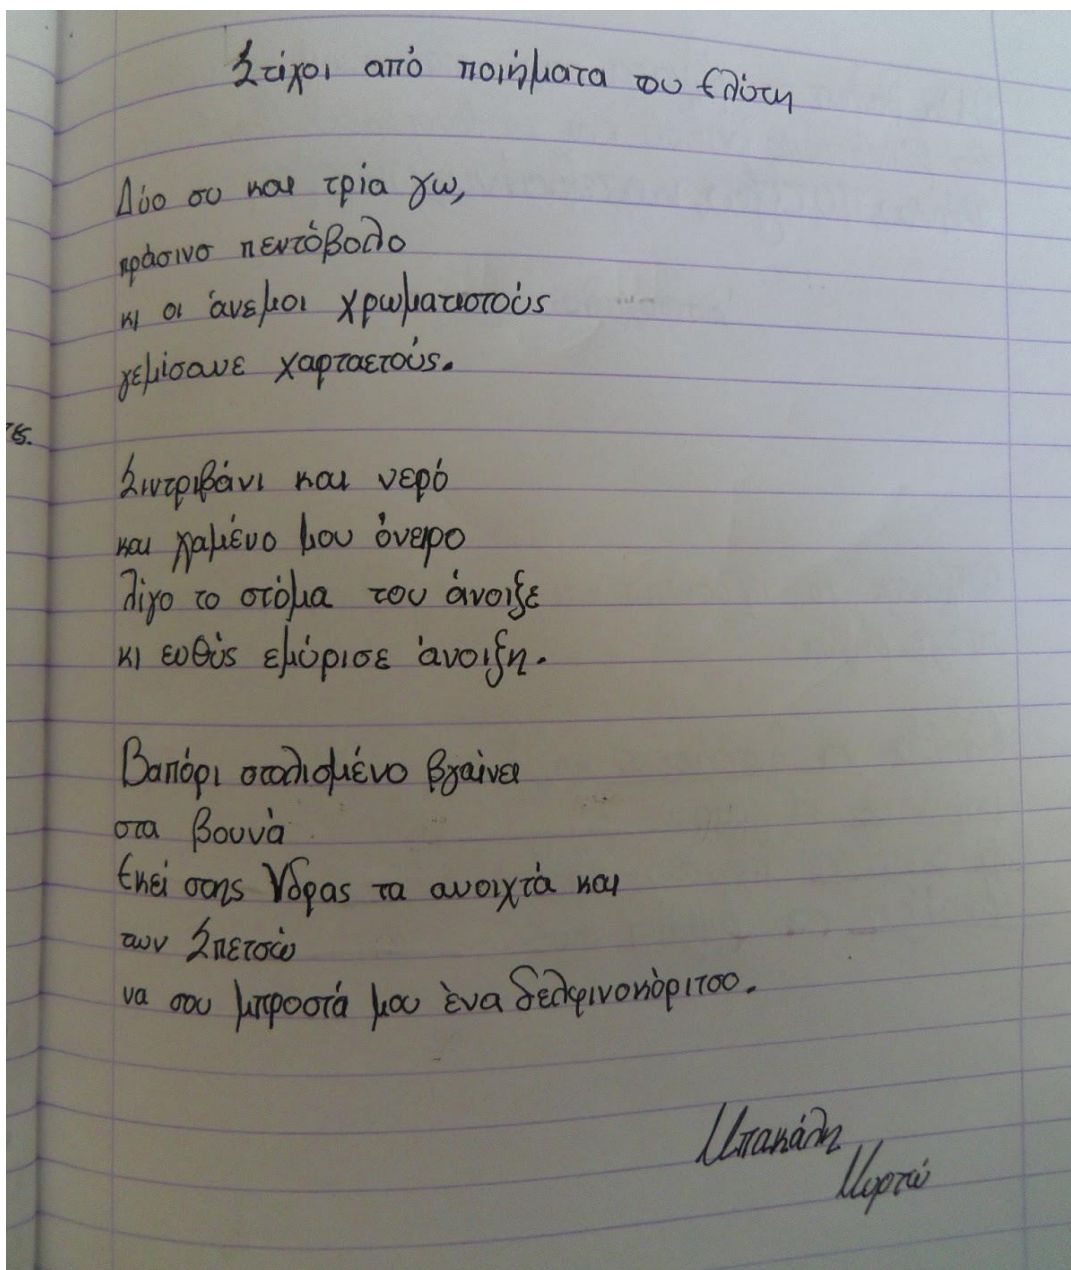 Στίχοι από ποιήματα του Ελύτη
Δύο συ και τρία γω,
πράσινο πεντόβολο
κι οι άνεμοι χρωματιστούς
γεμίσανε χαρταετούς.
Σιντριβάνι και νερό
και χαμένο μου όνειρο
λίγο το στόμα του άνοιξε
κι ευθύς εμύρισε άνοιξη.
Βαπόρι στολισμένο βγαίνει
στα βουνά
Εκεί στης Ύδρας τα ανοιχτά και
των Σπετσώ
να σου μπροστά μου ένα δελφινοκόριτσο.
Μπακάλη
Μυρτώ